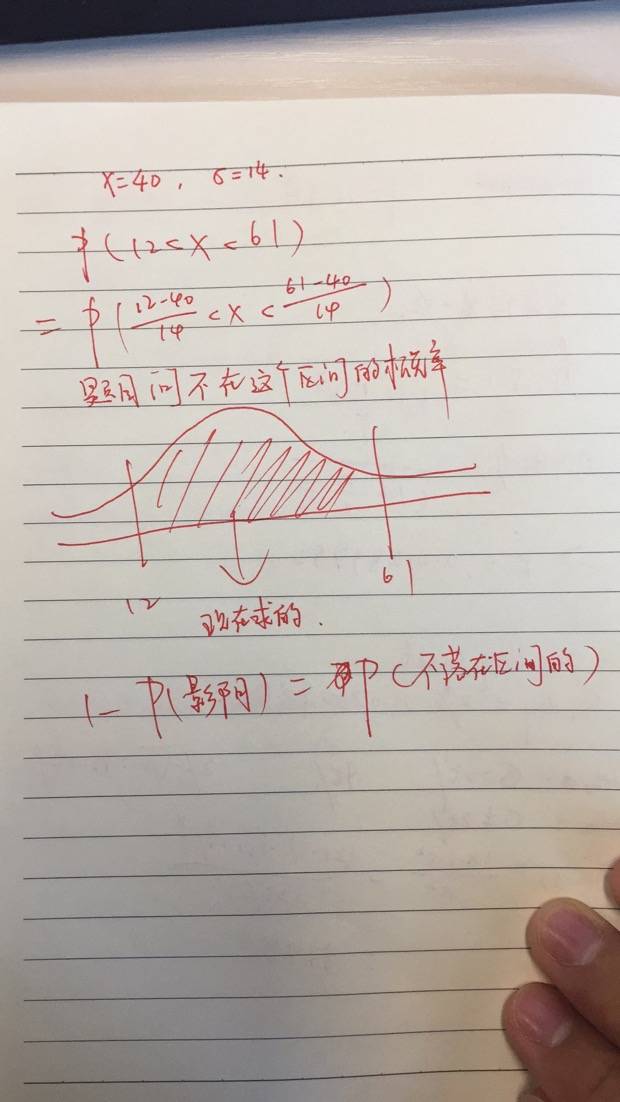 x=40, σ=14.
P(12<x<61)
=P(\frac{12-40}{14}<x<\frac{61-40}{14})
题目问不在这个区间的概率
12 61
现在求的.
1-P(影阴)=P(不落在区间的)